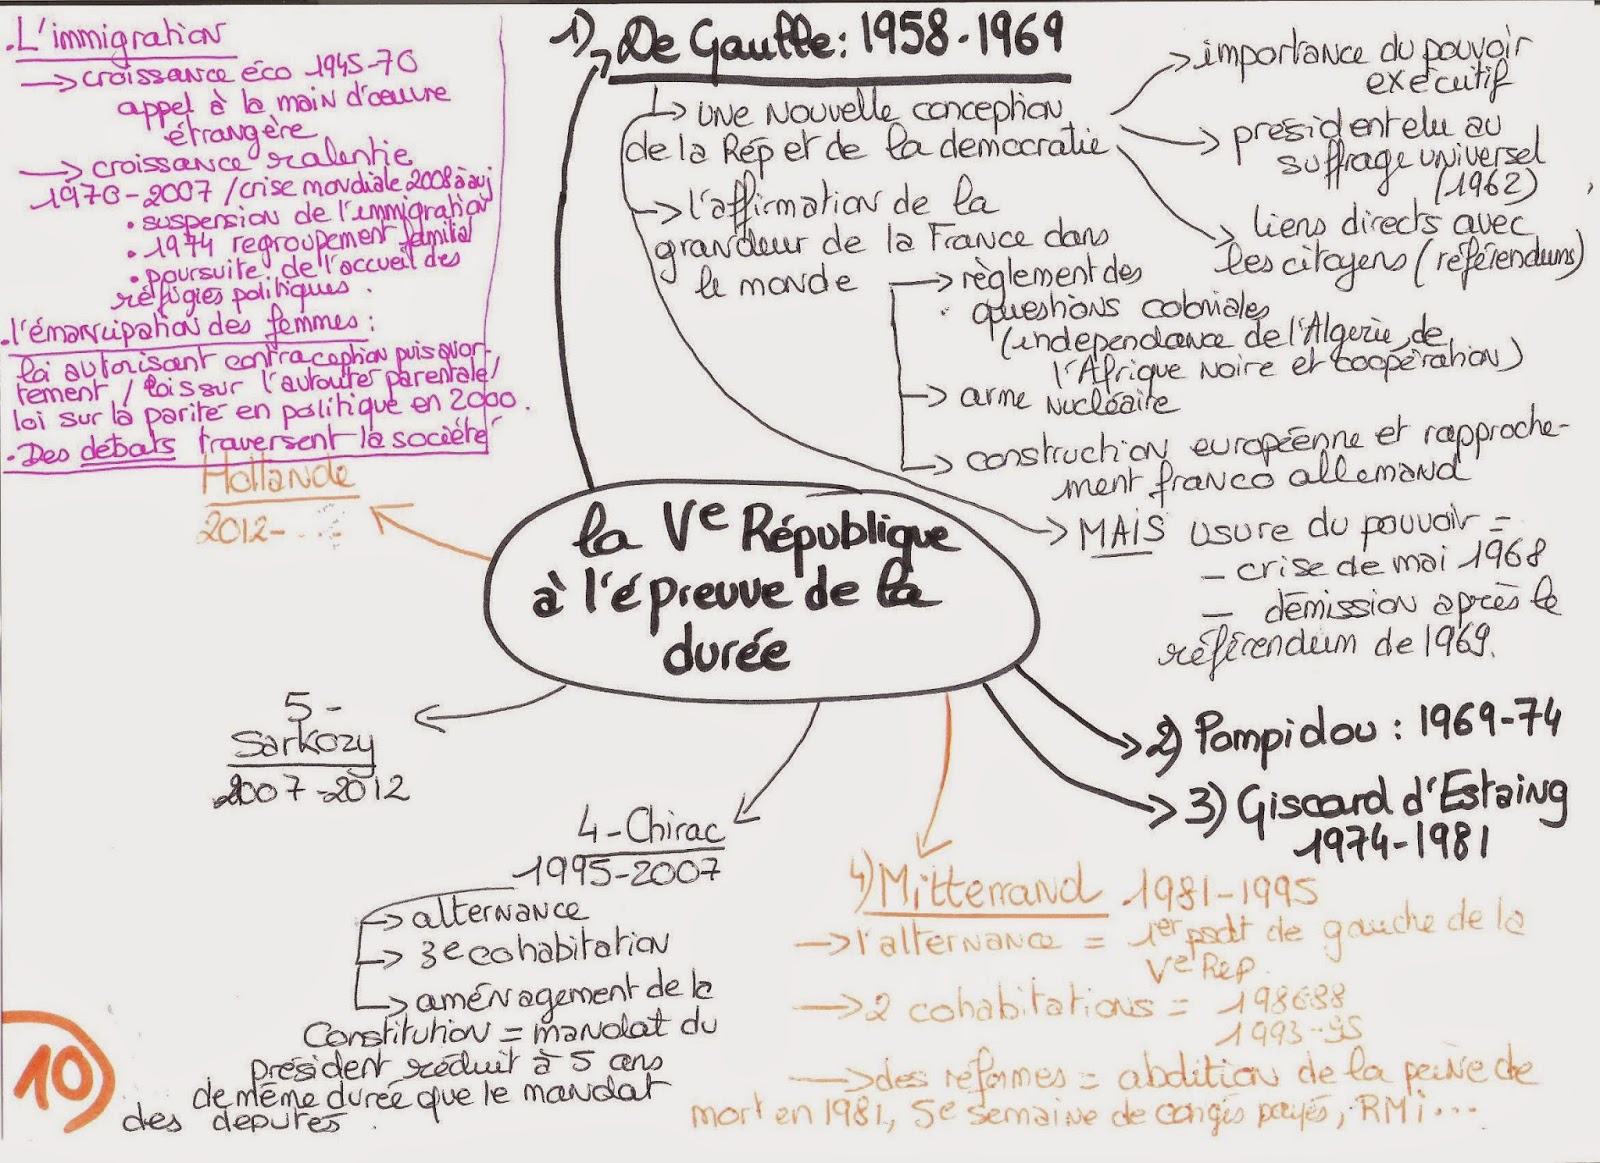 .L'immigration
→ croissance éco 1945-70
appel à la main d'œuvre
étrangère
→ croissance ralentie
1970-2007 / crise mondiale 2008 à auj
• suspension de l'immigration
• 1974 regroupement familial
• poursuite de l'accueil des
réfugiés politiques.
.l'émancipation des femmes :
loi autorisant contraception puis avor-
tement / lois sur l'autorité parentale /
loi sur la parité en politique en 2000.
.Des débats traversent la société
1) De Gaulle : 1958-1969
↳ une nouvelle conception
de la Rép et de la démocratie
→ importance du pouvoir
exécutif
→ président elu au
suffrage universel
(1962)
→ liens directs avec
les citoyens (référendums)
→ l'affirmation de la
grandeur de la France dans
le monde
→ règlement des
questions coloniales
(indépendance de l'Algérie, de
l'Afrique Noire et coopération)
→ arme nucléaire
→ construction européenne et rapproche-
ment franco allemand
→ MAIS usure du pouvoir =
- crise de mai 1968
- démission après le
référendum de 1969.
la Ve République
à l'épreuve de la
durée
Hollande
2012-...
2) Pompidou : 1969-74
3) Giscard d'Estaing
1974-1981
4) Mitterrand 1981-1995
→ l'alternance = 1er psdt de gauche de la
Ve Rep.
→ 2 cohabitations = 1986-88
1993-95
→ des réformes = abolition de la peine de
mort en 1981, 5e semaine de congés payés, RMI...
4-Chirac
1995-2007
→ alternance
→ 3e cohabitation
→ aménagement de la
Constitution = mandat du
président réduit à 5 ans
de même durée que le mandat
des députés.
5-
Sarkozy
2007-2012
10